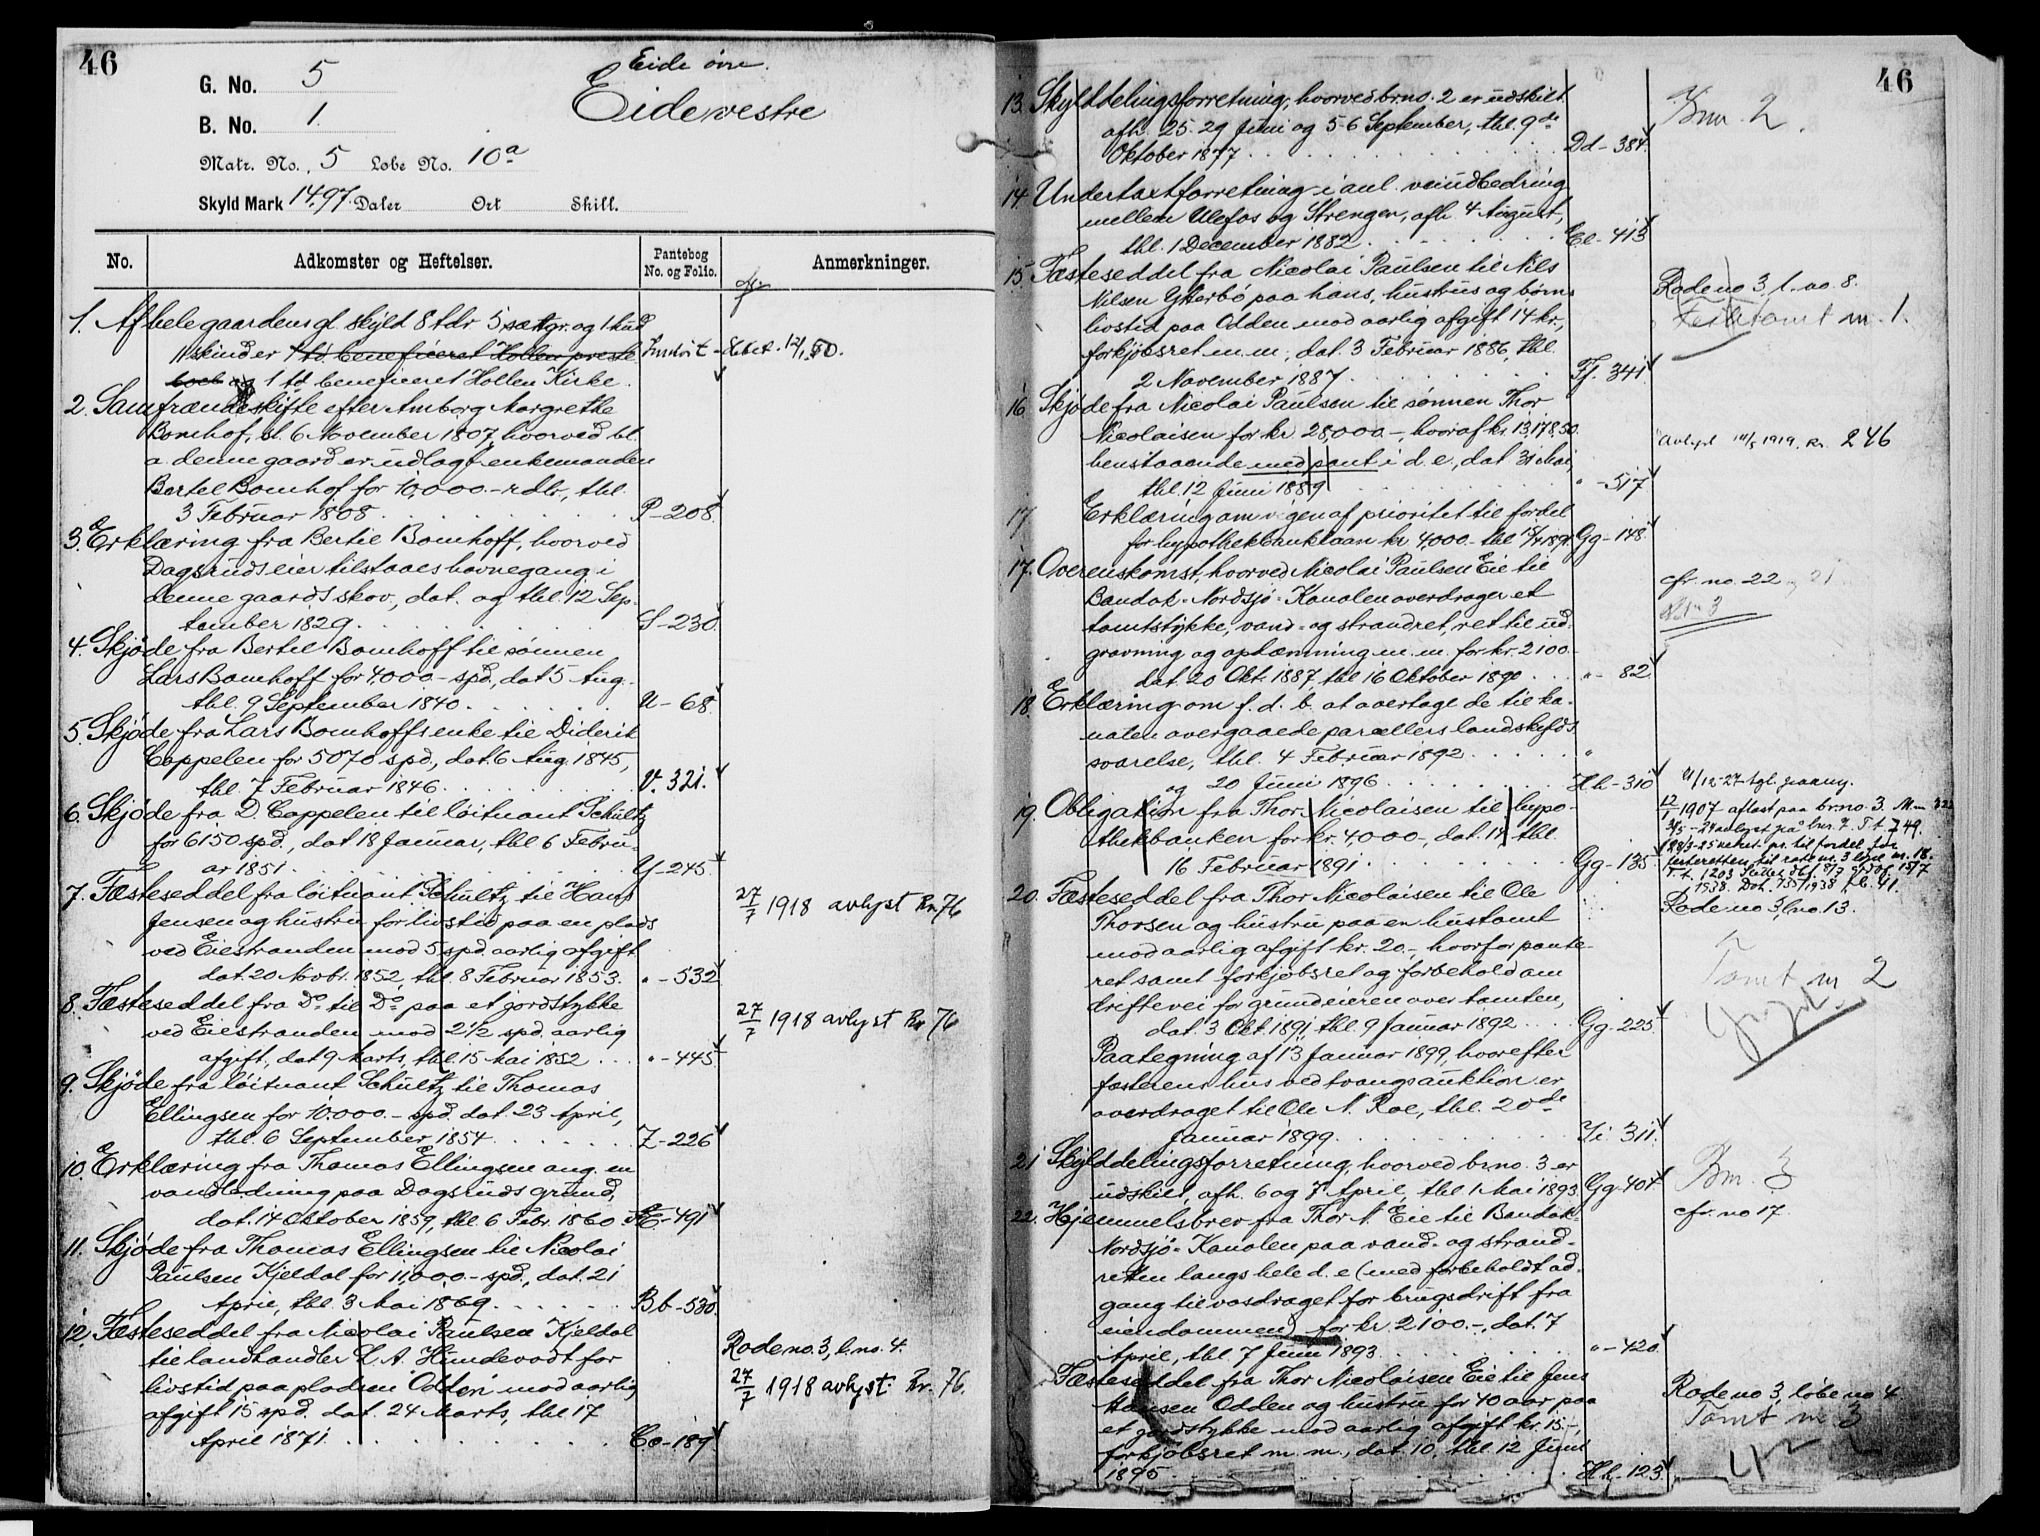 46
G. No. 5
Eide övre
B. No. 1.
Eide vestre
Matr. No. 5 Løbe No. 10a
Skyld Mark 14,97. Daler Ort Skill.
No. Adkomster og Heftelser. Pantebog No. og Folio. Anmerkninger.
1. Af hele gaardens gl. skyld 8 tdr 5 sættgr. og 1 hud
11 skinder 1 td beneficeret Hollen preste
boel og 1 td beneficeret Hollen Kirke.
2. Samfrændeskifte efter Amborg Margrethe
Bomhof, sl. 6 November 1807, hvorved bl.
a. denne gaard er udlagt enkemanden
Bertel Bomhof for 10,000.- rdlr, thl.
3 Februar 1808 P-208.
3. Erklæring fra Bertil Bomhoff, hvorved
Dagsruds eier tilstaaes havnegang i
denne gaards skov, dat. og thl. 12 Sep-
tember 1829 S-230
4. Skjøde fra Bertil Bomhoff til sønnen
Lars Bomhoff for 4000 - spd, dat 5 Aug.
thl. 9 September 1840 U-68.
5. Skjøde fra Lars Bomhoffs enke til Diderik
Cappelen for 5070 spd, dat. 6 Aug. 1845,
thl. 7 Februar 1846 V. 321.
6. Skjøde fra D. Cappelen til løitnant Schultz
for 6150 spd., dat 18 Januar, thl 6 Febru-
ar 1851 Y-245
7. Fæsteseddel fra løitnant Schultz til Hans
Jensen og hustru for livstid paa en plads
27/7 1918 avlyst Rn 76
ved Eiestranden mod 5 spd. aarlig afgift
dat 20 Novbr. 1852, thl. 8 Februar 1853. "-532
8. Fæsteseddel fra Do til Do paa et jordstykke
ved Eiestranden mod 2½ spd. aarlig
27/7 1918 avlyst Rn 76
afgift, dat 9 Marts, thl. 15 Mai 1852 "-445
9. Skjøde fra løitnant Schultz til Thomas
Ellingsen for 10.000.- spd. dat. 23 April,
thl. 6 September 1854 Z-226
10. Erklæring fra Thomas Ellingsen ang. en
vandledning paa Dagsruds grund,
dat. 14 Oktober 1859, thl 6 Febr. 1860 Æ-491
11. Skjøde fra Thomas Ellingsen til Nicolai
Paulsen Kjeldal for 11,000.- spd., dat. 21
April, thl. 3 Mai 1869 Bb-530.
12. Fæsteseddel fra Nicolai Paulsen Kjeldal
til landhandler L. A. Hundevadt for
Rode no. 3, l. no. 4.
livstid paa pladsen Odden mod aarlig
27/7 1918 avlyst. Rn. 76.
afgift 15 spd. dat. 24 Marts, thl 17
April 1871. Cc-189
46
13. Skylddelingsforretning, hvorved br.no. 2 er udskilt
Bnr. 2.
afh. 25-29 Juni og 5-6 September, thl. 9de
Oktober 1877 Dd-384.
14. Undertaxtforretning i anl. veiudbedring
mellem Ulefos og Strengen, afh. 4 August,
thl. 1 December 1882 Ee-413
15. Fæsteseddel fra Nicolai Paulsen til Nils
Nilsen Ytterbö paa hans, hustrus og børns
Rode no 3, l. no 8.
livstid paa Odden mod aarlig afgift 14 kr.,
Festetomt nr. 1.
forkjøbsret m. m., dat. 3 Februar 1886, thl.
2 November 1887 Ff. 341
16 Skjøde fra Nicolai Paulsen til sønnen Thor
Nicolaisen for kr 28,000.-, hvoraf kr. 13,178,50.
1919. Rn. 246
henstaaende med pant i d. e., dat 31 Mai,
thl. 12 Juni 1889 "-517
17 Erklæring om vigen af prioritet til fordel
for hypothekbanklaan kr 4,000.- thl 1891 Gg-148
17. Overenskomst, hvorved Nicolai Paulsen Eie til
Bandak-Nordsjø-Kanalen overdrager et
cfr. no. 22 og 21
tomtstykke, vand- og strandret, ret til ud-
gravning og opdæmning m. m. for kr. 2100-
dat. 20 Okt 1887, thl 16 Oktober 1890 "-82
18. Erklæring om f. d. b. at overtage de til ka-
nalen overgaaede parcellers landskylds
svarelse, thl. 4 Februar 1892 "
og 20 Juni 1896 Hh-310
19. Obligation fra Thor Nicolaisen til hypo-
1907 aflæst paa br.no. 3.
thekbanken for kr. 4,000-, dat. 14, thl.
16 Februar 1891 Gg-135
20. Fæsteseddel fra Thor Nicolaisen til Ole
Rode no 3, l no. 13.
Thorsen og hustru paa en hustomt
mod aarlig afgift kr. 20.-, hvorfor pante-
Tomt nr 2
ret samt forkjøbsret og forbehold om
driftevei for grundeieren over tomten,
dat. 3 Okt. 1891, thl. 9 Januar 1892 Gg-225
Paategning af 13 Januar 1899, hvorefter
fæsterens hus ved tvangsauktion er
overdraget til Ole N. Roe, thl. 20de
Januar 1899 Ii-311.
21 Skylddelingsforretning, hvorved br.no. 3 er
Bnr. 3
udskilt, afh. 6 og 7 April, thl 1 Mai 1893. Gg-404
22. Hjemmelsbrev fra Thor N. Eie til Bandak-
cfr. no 17.
Nordsjö-Kanalen paa vand- og strand-
reten langs hele d. e (med forbeholdt ad-
gang til vasdraget for brugsdrift fra
eiendommen) for kr 2100.-, dat. 7
April, thl. 7 Juni 1893 "-420
Fæsteseddel fra Thor Nicolaisen Eie til Jens
Hansen Odden og hustru for 40 aar paa
Rode no 3, løbe no 4
et jordstykke mod aarlig afgift kr. 15-,
Tomt nr 3
forkjøbsret m. m., dat. 10, thl. 12 Juni
1895 Hh-123